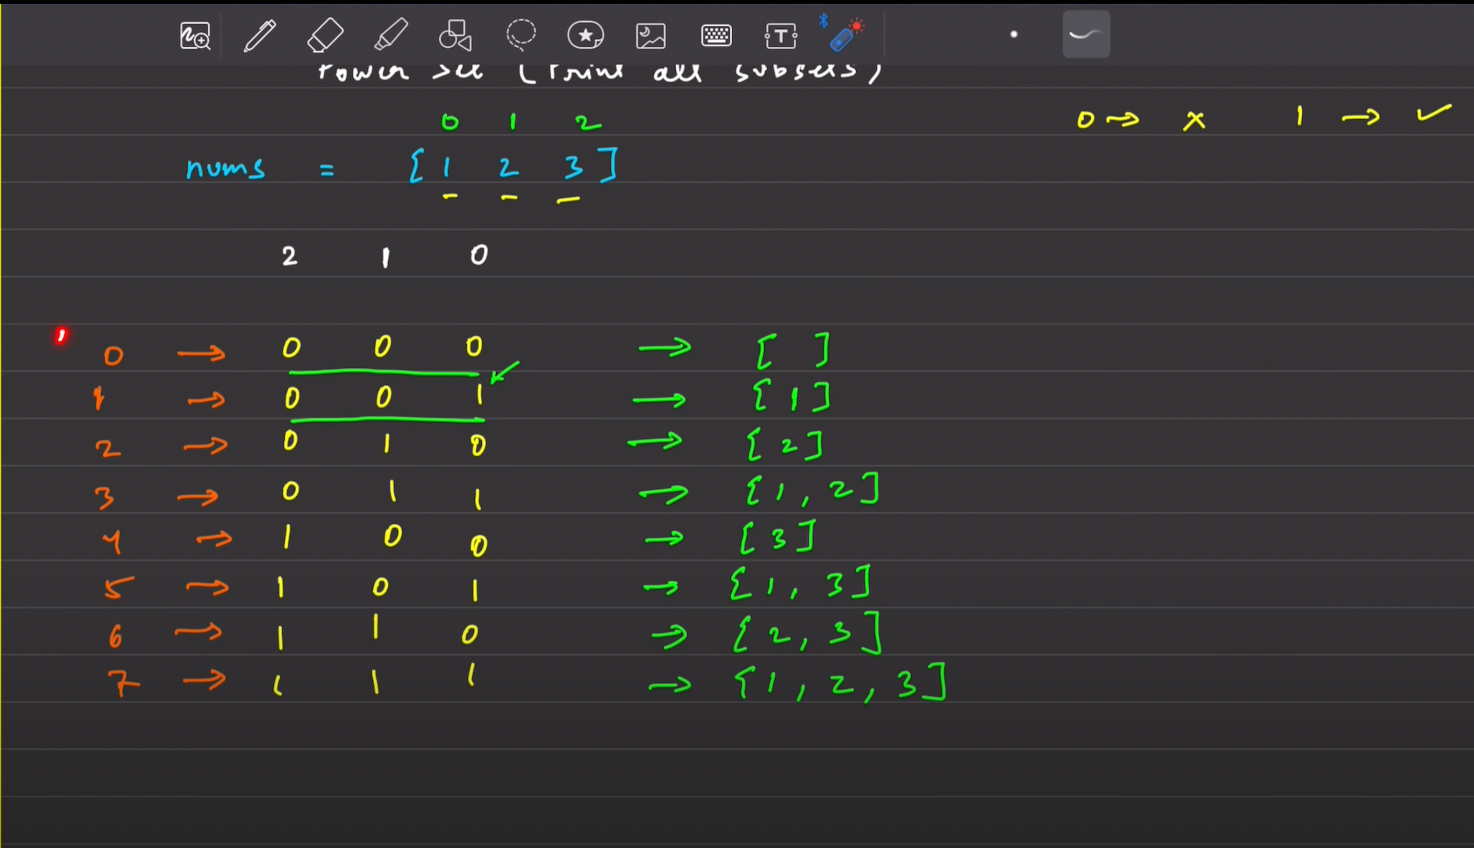 Power Set (Print all subsets)
0 1 2
0 → × 1 → ✓
nums = [ 1 2 3 ]
2 1 0
0 → 0 0 0 → [ ]
1 → 0 0 1 ✓ → [ 1 ]
2 → 0 1 0 → [ 2 ]
3 → 0 1 1 → [ 1, 2 ]
4 → 1 0 0 → [ 3 ]
5 → 1 0 1 → [ 1, 3 ]
6 → 1 1 0 → [ 2, 3 ]
7 → 1 1 1 → [ 1, 2, 3 ]